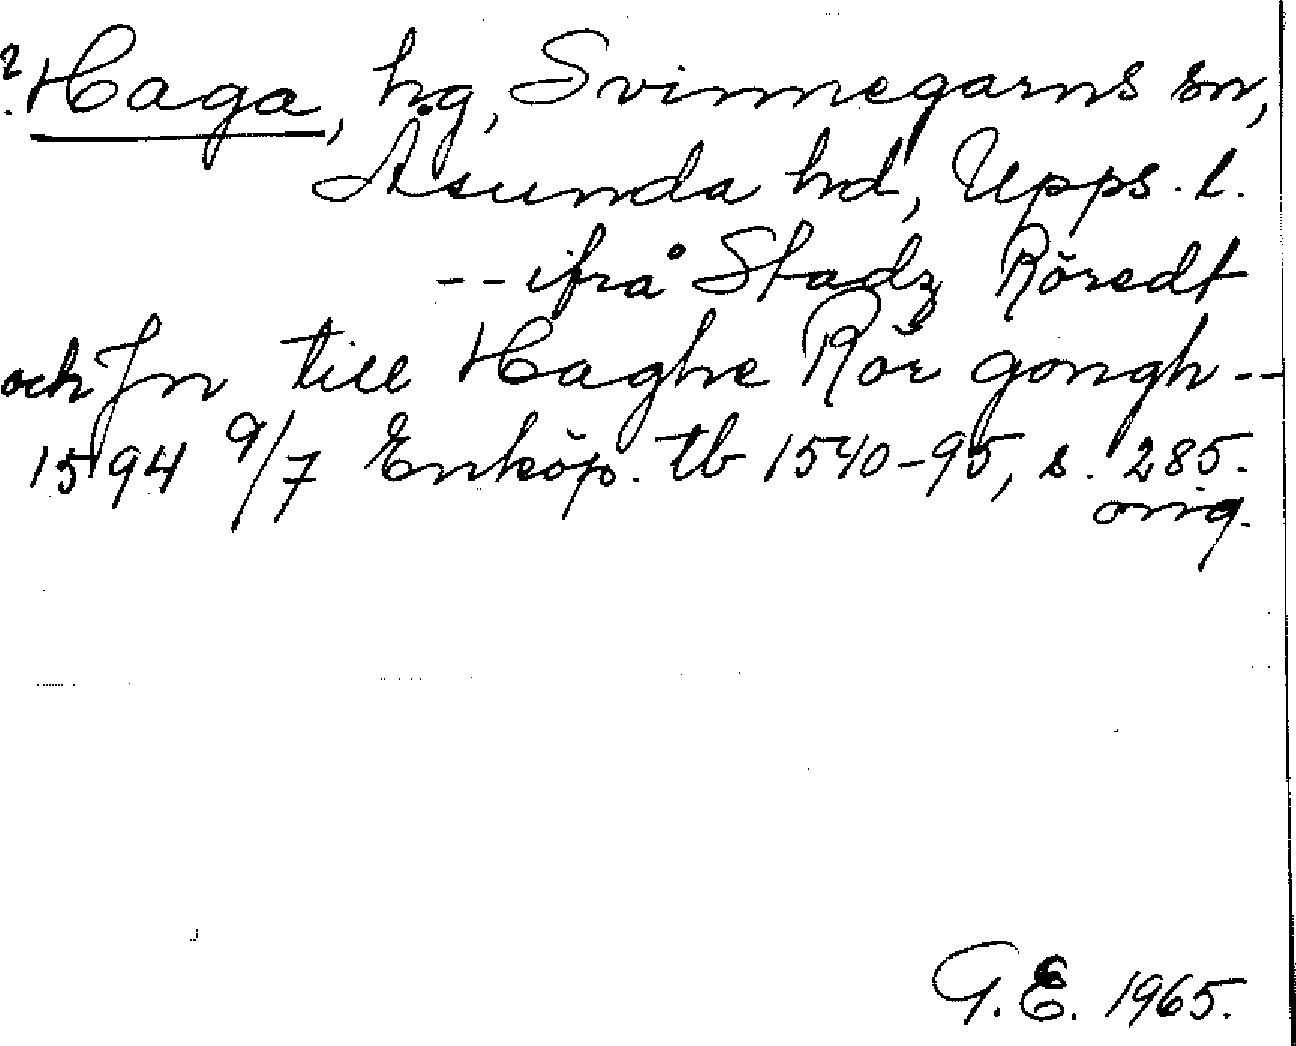 ? Haga, hg, Svinnegarns sn,
Åsunda hd, Upps. l.
-- ifrå Stadz Röredt
och Jn till Haghe Rör gongh --
1594 9/7 Enköp. tb 1540-95, s. 285.
orig.
G.E. 1965.